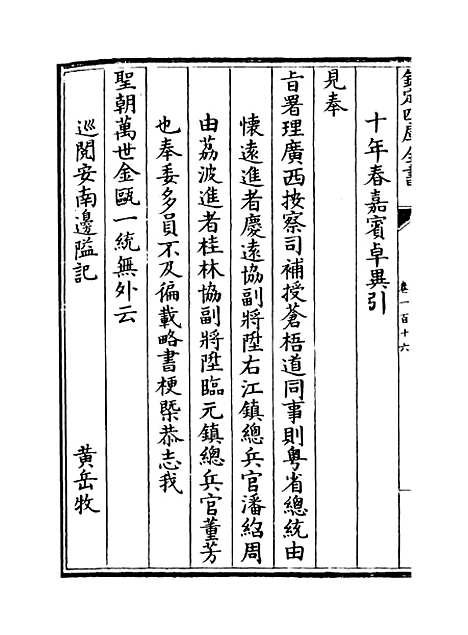 欽定四庫全書
卷一百十六
十年春嘉賓卓異引
見奉
旨署理廣西按察司補授蒼梧道同事則粤省總統由
懷遠進者慶遠協副將陞右江鎮總兵官潘紹周
由荔波進者桂林協副將陞臨元鎮總兵官董芳
也奉委多員不及徧載略書梗槩恭志我
聖朝萬世金甌一統無外云
巡閲安南邊隘記 黄岳牧